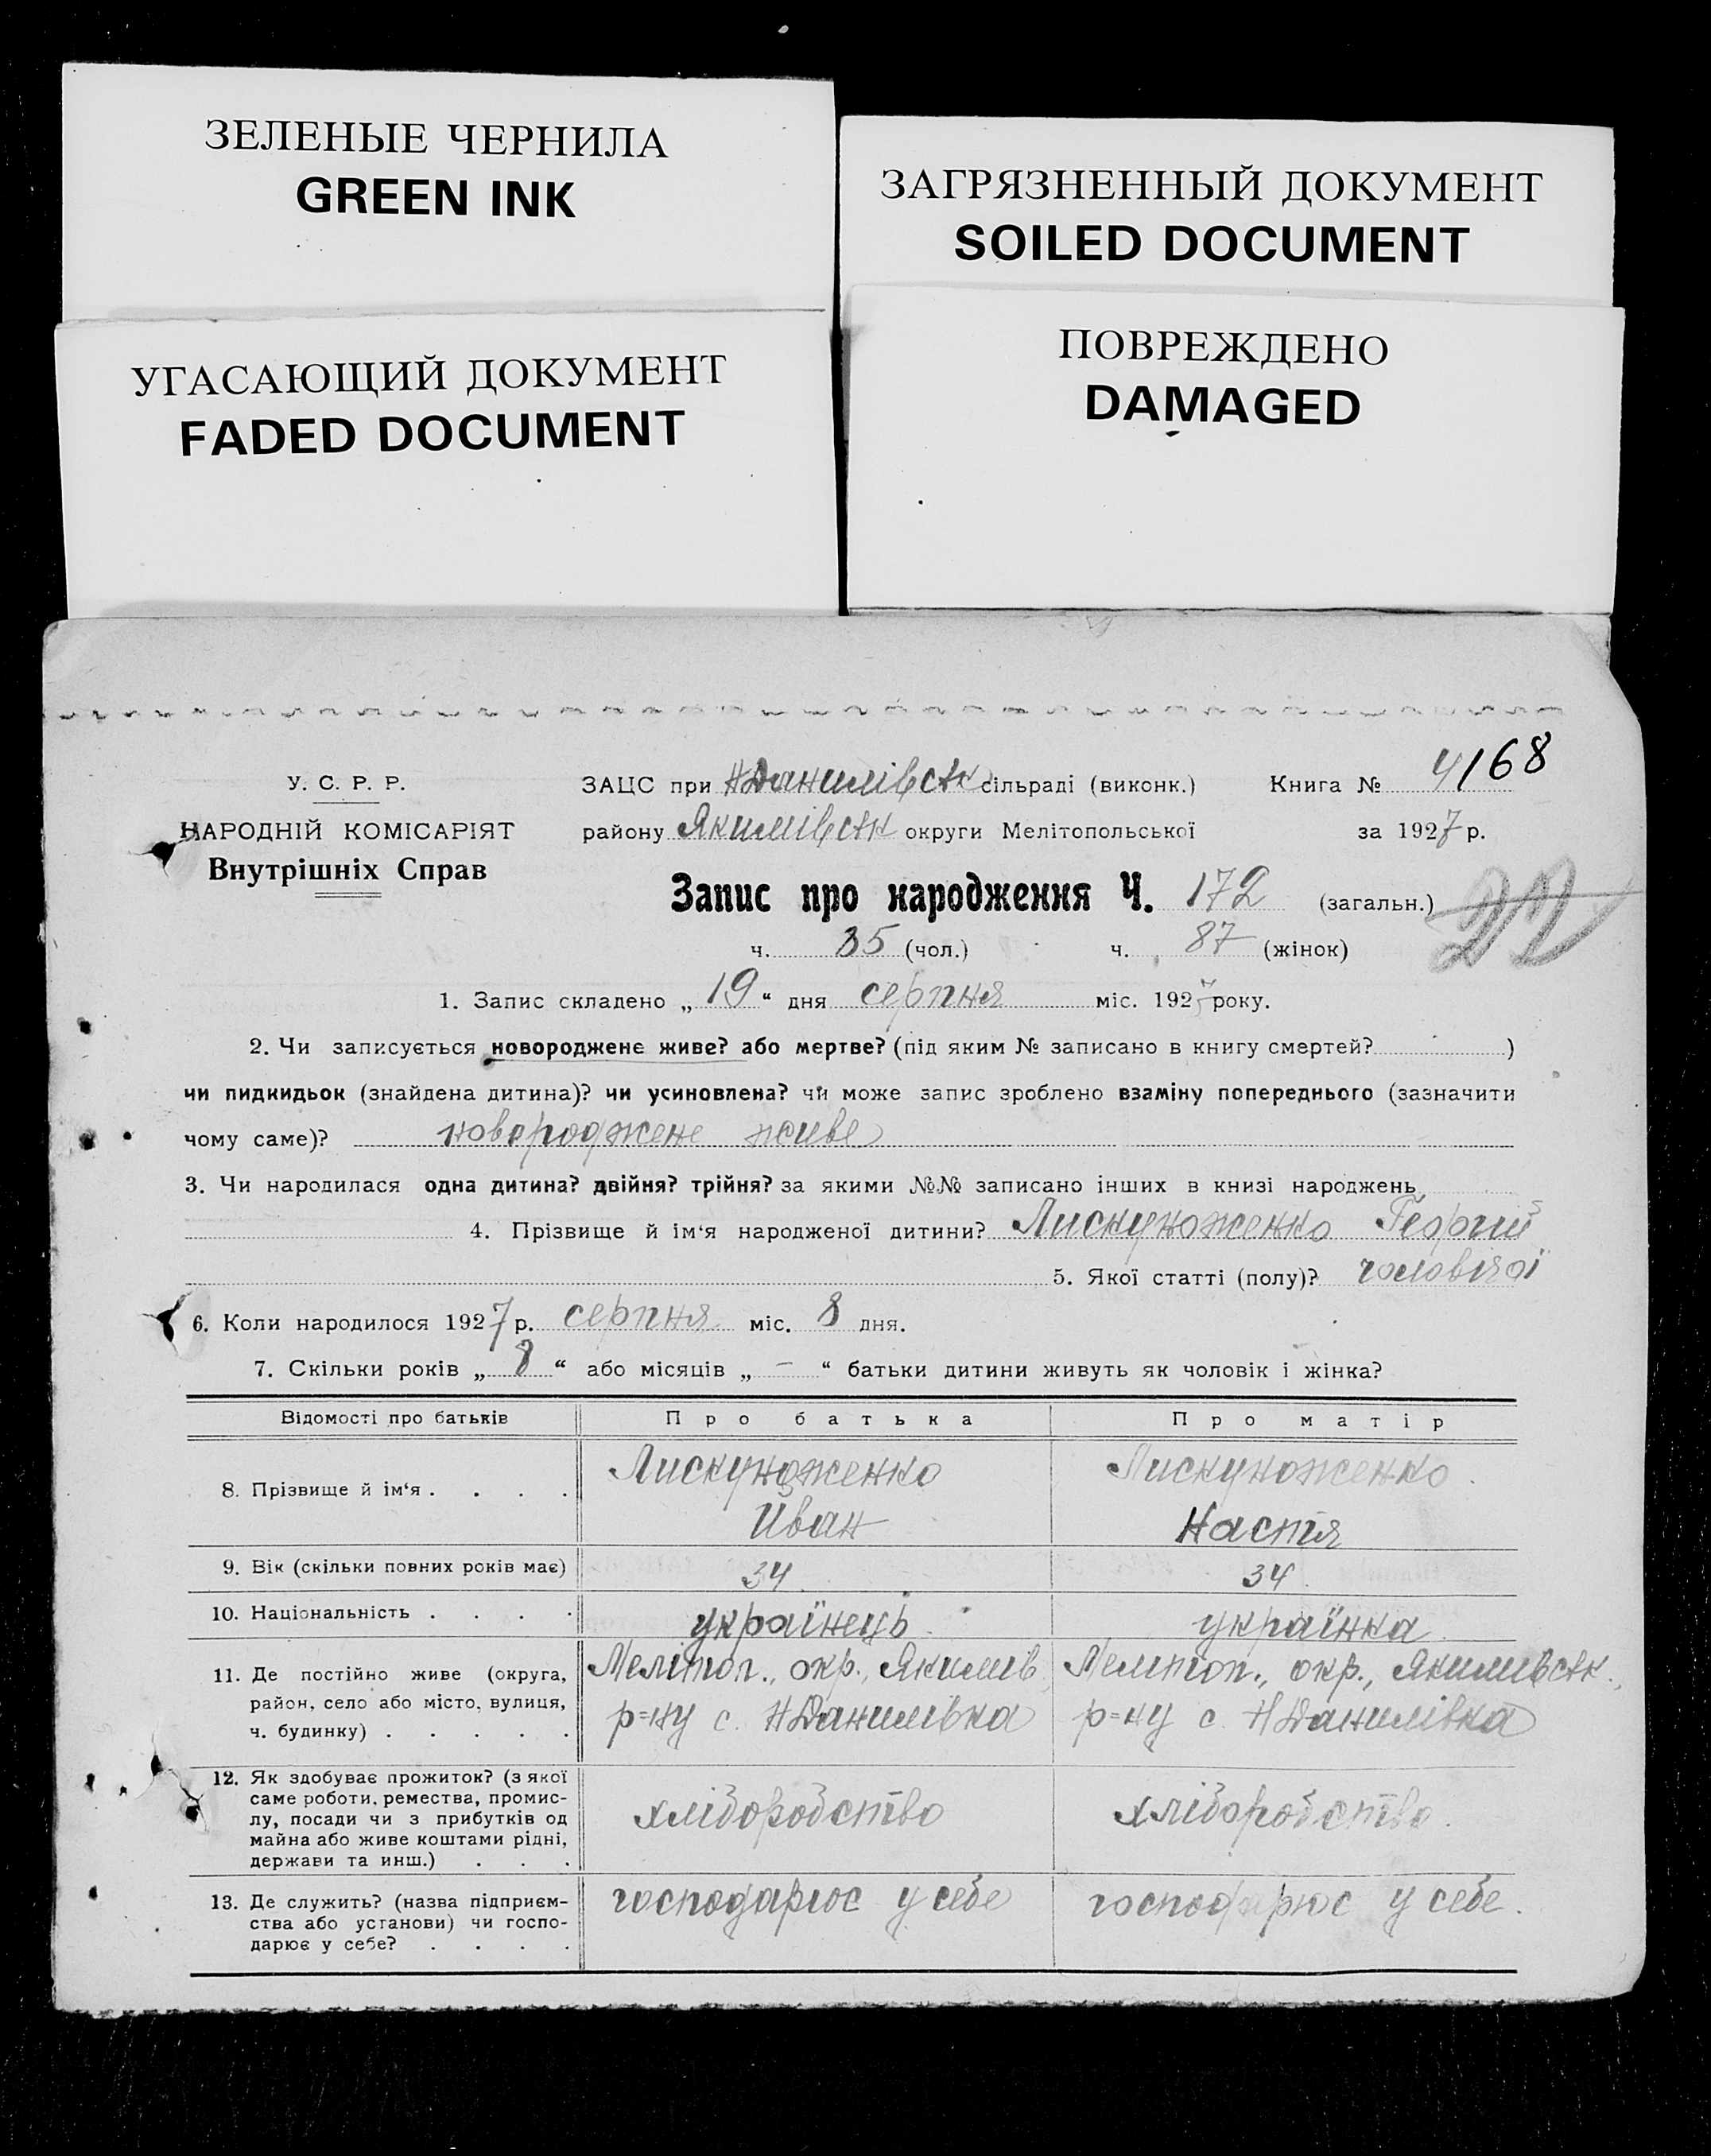 ЗЕЛЕНЫЕ ЧЕРНИЛА
GREEN INK
ЗАГРЯЗНЕННЫЙ ДОКУМЕНТ
SOILED DOCUMENT
УГАСАЮЩИЙ ДОКУМЕНТ
FADED DOCUMENT
ПОВРЕЖДЕНО
DAMAGED
У. С. Р. Р.
НАРОДНІЙ КОМІСАРІЯТ
Внутрішніх Справ
ЗАЦС при НДанилівськ сільраді (виконк.) Книга № 4168
району Якимівськ округи Мелітопольської за 1927 р.
Запис про народження Ч. 172 (загальн.)
ч. 85 (чол.) ч. 87 (жінок)
1. Запис складено „ 19 “ дня серпня міс. 1927 року.
2. Чи записується новороджене живе? або мертве? (під яким № записано в книгу смертей? )
чи пидкидьок (знайдена дитина)? чи усиновлена? чи може запис зроблено взаміну попереднього (зазначити
чому саме)? новороджене живе
3. Чи народилася одна дитина? двійня? трійня? за якими №№ записано інших в книзі народжень
4. Прізвище й ім‘я народженої дитини? Лискуноженко Георгий
5. Якої статті (полу)? чоловічої
6. Коли народилося 1927 р. серпня міс. 8 дня.
7. Скільки років „ 8 “ або місяців „ – “ батьки дитини живуть як чоловік і жінка?
Відомості про батьків Про батька Про матір
8. Прізвище й ім‘я . . . . Лискуноженко Лискуноженко
Иван Настя
9. Вік (скільки повних років має) 34 34
10. Національність . . . . українець українка
11. Де постійно живе (округа,
район, село або місто, вулиця,
ч. будинку) . . . . .
Меліто​п., окр., Якимів
р=ну с. НДанилівка
Мелітоп., окр., Якимивськ.,
р=ну с. НДанилівка
12. Як здобуває прожиток? (з якої
саме роботи, ремества, промис-
лу, посади чи з прибутків од
майна або живе коштами рідні,
держави та инш.) . . .
хліборобство хліборобство.
13. Де служить? (назва підприєм-
ства або установи) чи госпо-
дарює у себе? . . . .
господарює у себе господарює у себе.